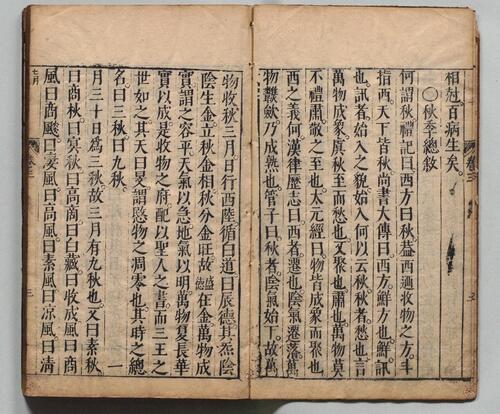 相尅百病生矣
○秋季總敘
何謂秋禮記曰西方曰秋葢西廼收物之方斗
指西天下皆秋尚書大傳曰西方鮮方也鮮訊
也訊者始入之貌始入何以云秋秋者愁也言
萬物成象厲秋至而愁也又愁也肅也萬物莫
不禮肅敬之至也太元經曰物皆成象而聚也
西之義何漢律歷志曰西者遷也陰氣遷落萬
物䪘歛乃成熟也管子曰秋者陰氣始下故萬
物收秋三月日行西陸循白道曰辰德其炁陰
陰生金立秋金相秋分金旺故盛德在金萬物成
實謂之容平天氣以急地氣以明萬物夏長華
實以成是收物之府配以聖人之書而三王之
世如之其天曰旻謂愍物之凋零也其時之總
名曰三秋曰九秋
月三十日爲三秋故三月有九秋也又曰素秋
曰商秋曰寘秋曰高商曰白藏曰收成風曰商
風曰商飈曰凄風曰高風曰素風曰凉風曰清
七月
卷三
三
一
卷三